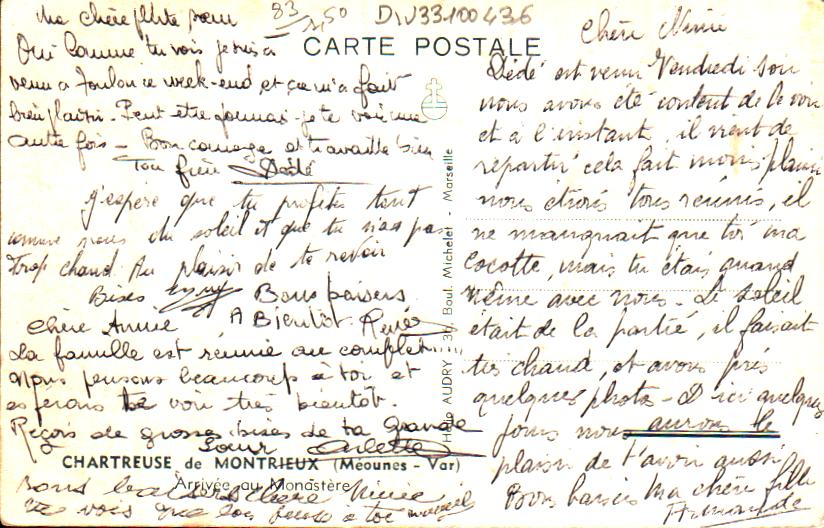 Ma chère petite sœur
83 1,50
DIV33100436
CARTE POSTALE
Oui comme tu vois je suis
venu a Toulon ce week-end et ça m'a fait
bien plaisir. Peut-etre pourrai-je te voir une
autre fois - Bon courage et travaille bien
Ton frère Dédé
J'espère que tu profites tant
comme nous du soleil et que tu n'as pas
trop chaud Au plaisir de te revoir
Bises
Bons baisers
A Bientôt. Renée
Chère Annie
La famille est reunie au complet.....
Nous pensons beaucoup à toi et
esperons te voir très bientôt.
Reçois de grosses bises de ta Grande
Soeur Arlette
CHARTREUSE de MONTRIEUX (Méounes - Var)
Arrivée au Monastère
Bons baisers chère
tu vois que l'on pense à toi
AUDRY - 36 Boul. Michelet - Marseille
Chère Ninie
Dédé est venu Vendredi soir
nous avons été content de le voir
et à l'instant il vient de
repartir cela fait moins plaisir
nous étions tous reunis, il
ne manquait que toi ma
cocotte, mais tu étais quand
même avec nous. Le soleil
était de la partie, il faisait
très chaud, et avons pris
quelques photos - D'ici quelques
jours nous aurons le
plaisir de t'avoir aussi
Bons baisers ma chère fille